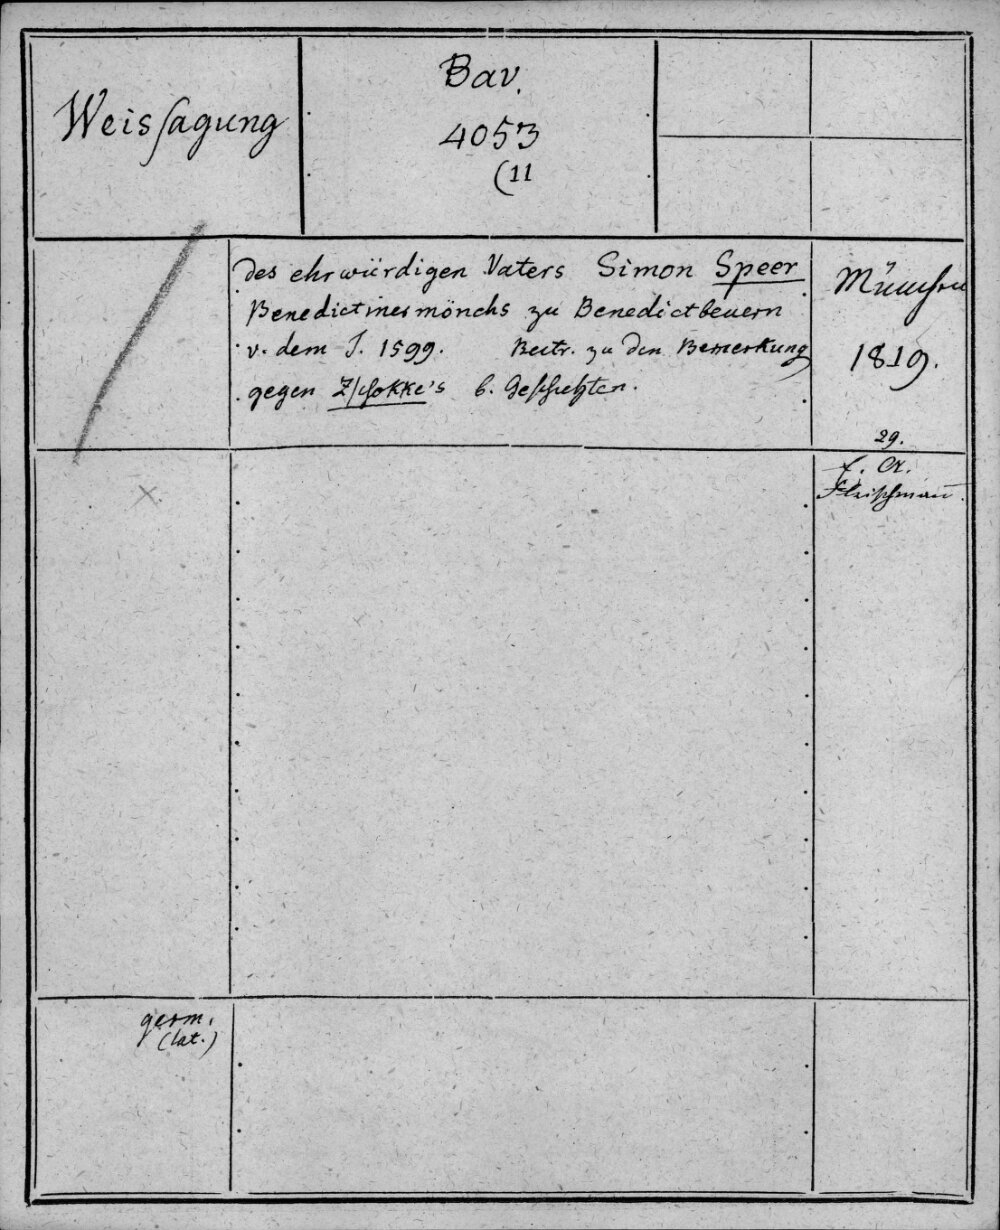 Weisſagung
Bav.
4053
(11
des ehrwürdigen Vaters Simon Speer
Benedictinermönchs zu Benedictbeuern
v. dem J. 1599. Beitr. zu den Bemerkung
gegen Zſchokke's b. Geschichten.
München
1819.
29.
f. A.
Fleischmañ.
germ.
(lat.)